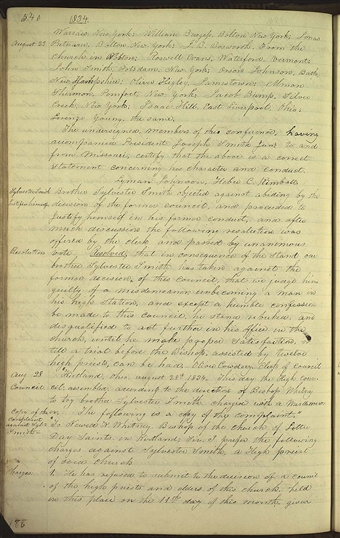 540 1834
Warsaw New York. William Bump, Bolton New York. Jonas
August 23. Putnam, Bolton New York. L. B. Bosworth. From the
church in Athens: Roswell Evans, Waterford, Vermont.
John Smith, Potsdam, New York. Orson Johnson, Bath,
New Hampshire. Oliver Higley, Jamestown. Alman
Sherman, Pomfret, New York. Jacob Bump, Silver
Creek, New York. Isaac Hill, East Liverpool, Ohio.
Lorenzo Young, the same.
The undersigned members of this conference, having
accompanied President Joseph Smith Junr. to and
from Missouri, certify that the above is a correct
statement concerning his character and conduct.
Lyman Johnson, Heber C. Kimball.
Brother Sylvester Smith objected against abiding by the
decision of the former council, and proceeded to
justify himself in his former conduct, and after
much discussion the following resolution was
offered by the clerk and passed by unanimous
Resolution vote. Resolved, that in consequence of the stand our
brother Sylvester Smith has taken against the
former decision of this council, that we judge him
guilty of a misdemeanor unbecoming a man in
his high station, and except a humble confession
be made to this council, he stands rebuked, and
disqualified to act further in his office in the
church, until he make proper satisfaction, or
till a trial before the Bishop, assisted by twelve
high priests, can be had. Oliver Cowdery, Clerk of council
Aug. 28 Kirtland, Ohio, August 28th 1834. This day the High Coun-
Council cil assembled according to the direction of Bishop Whitney
to try brother Sylvester Smith, charged with a misdemeanor.
The following is a copy of the complaint.
To Newel K. Whitney, Bishop of the church of Latter
Day Saints in Kirtland, Sir. I prefer the following
charges against Sylvester Smith, a High priest
of said church
1. He has refused to submit to the decision of a council
of the high priests and elders of this church, held
in this place on the 11th day of this month, given
86